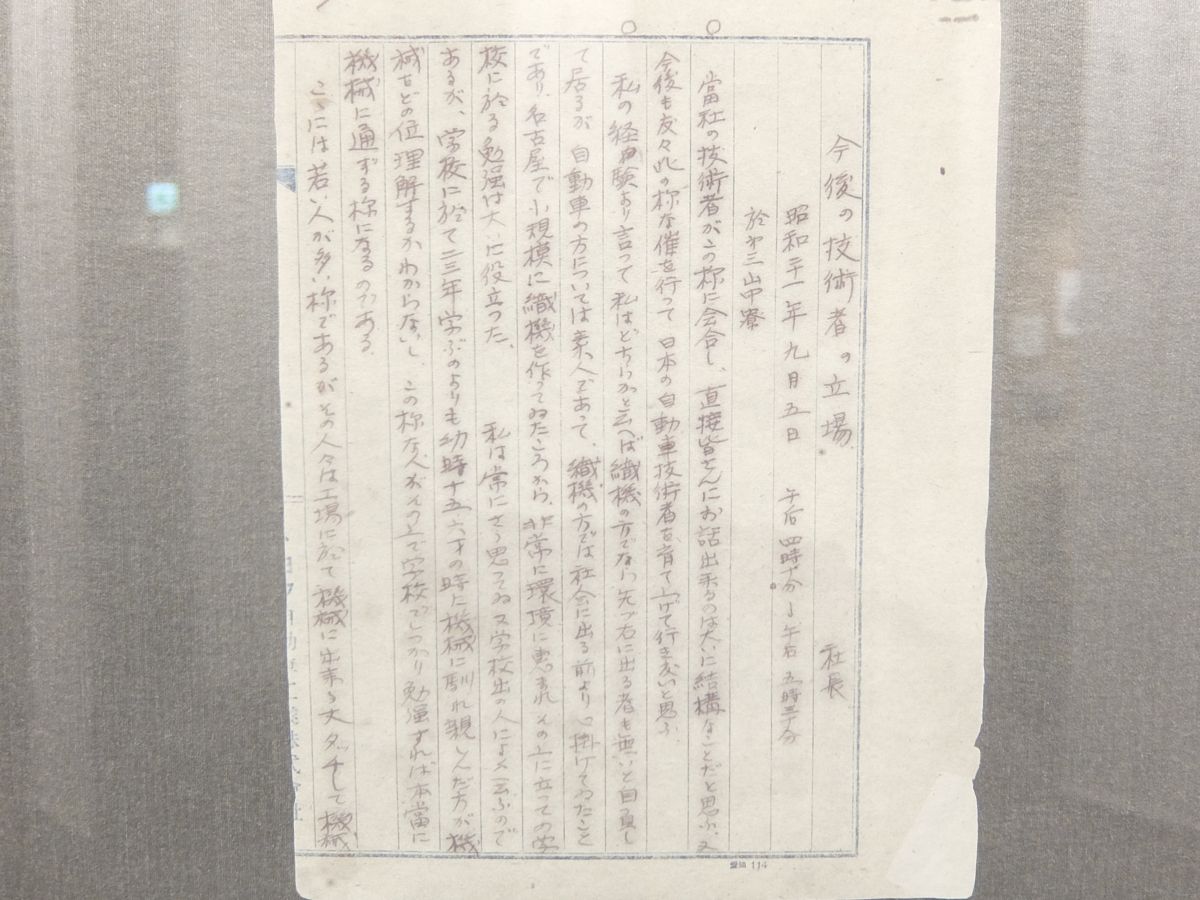 今後の技術者の立場
社長
昭和二十一年九月五日 午后四時十分〜午后五時三十分
於第三山中寮
當社の技術者がこの様に会合し、直接皆さんにお話出来るのは大いに結構なことだと思ふ。又
今後も度々此の様な催を行って日本の自動車技術者を育て上げて行き度いと思ふ。
私の経験より言って私はどちらかと云へば織機の方でなら先づ右に出る者も無いと自負し
て居るが自動車の方については素人であって、織機の方では社会に出る前より心掛けてゐたこと
であり、名古屋で小規模に織機を作ってゐたころから、非常に環境に惠まれその上に立っての学
校に於る勉強は大いに役立った。 私は常にさう思ってゐる又学校出の人によく云ふので
あるが、学校に於て二三年学ぶのよりも幼時十五六才の時に機械に馴れ親しんだ方が機
械をどの位理解するかわからないし、この様な人がその上で学校でしっかり勉強すれば本當に
機械に通ずる様になるのである。
こゝには若い人が多い様であるがその人々は工場に於て機械に出来る丈タッチして機械
自動車工業株式会社
114